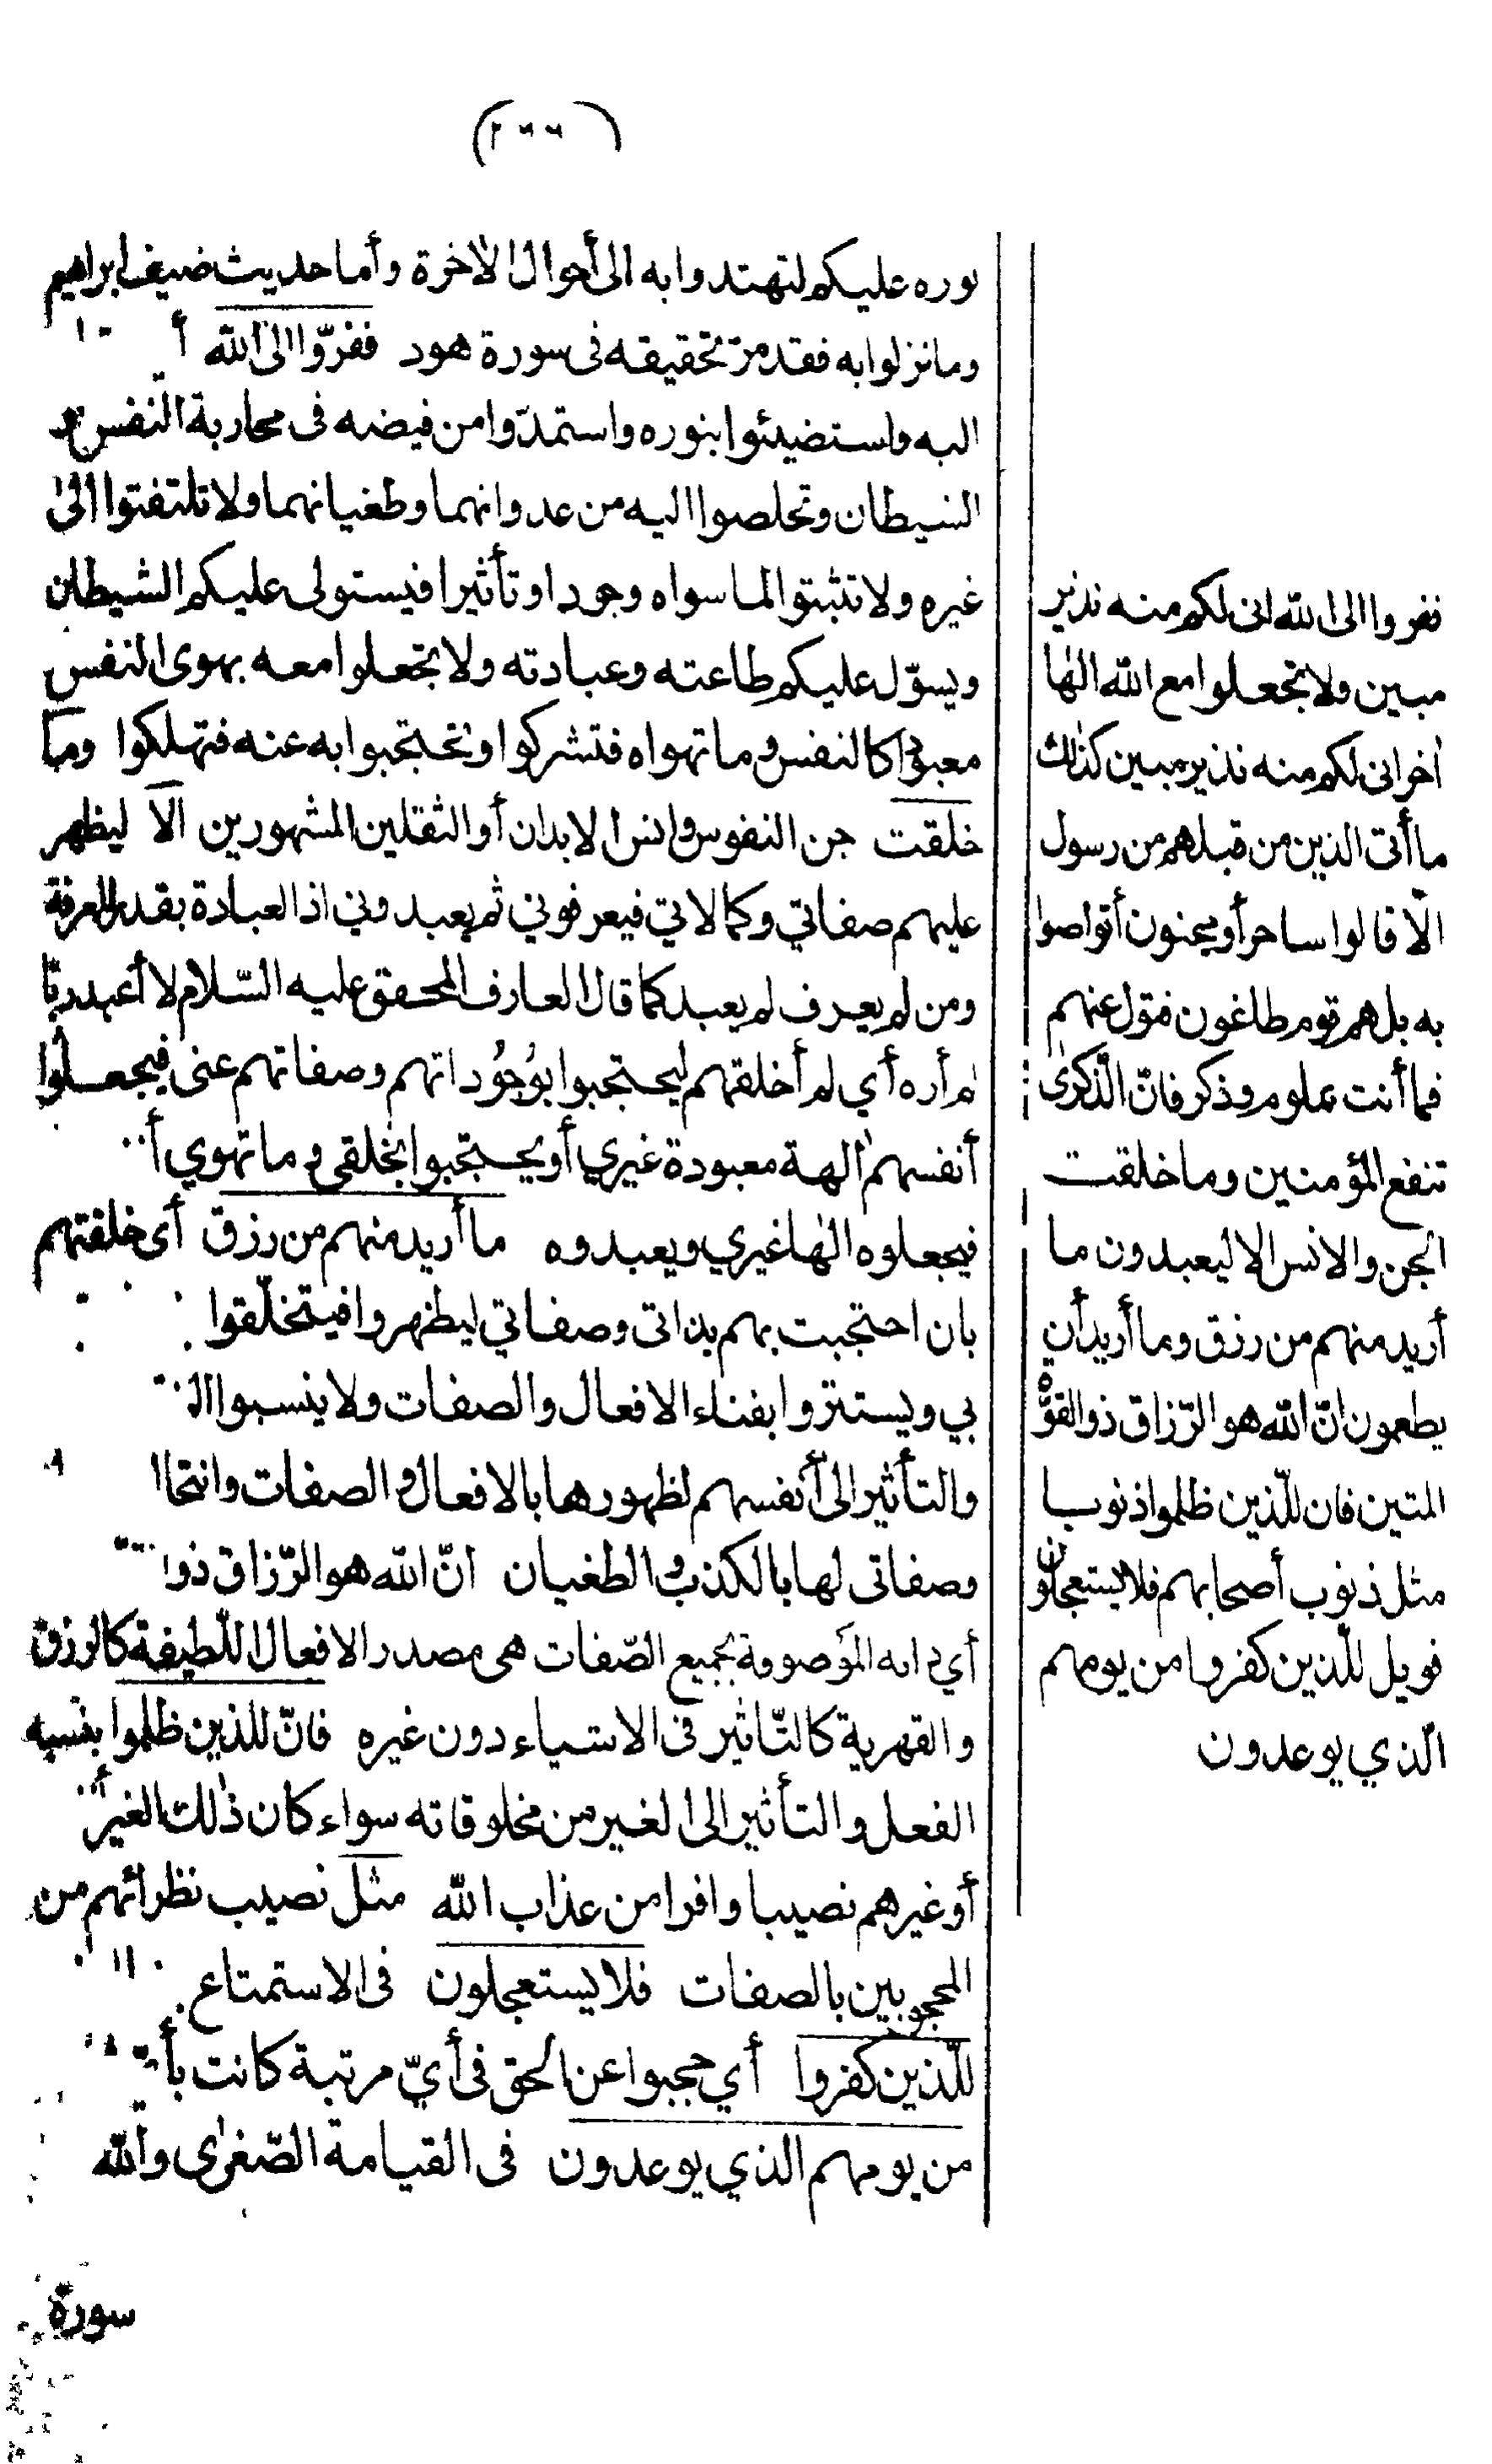 نوره عليكم لتهتدوا به الى أحوال الاخرة وأما حديث ضيف ابراهيم
وما نزلوا به فقد مرّ تحقيقه فى سورة هود ففرّوا الى الله
اليه واستضيئوا بنوره واستمدّوا من فيضه فى محاربة النّفس و
الشيطان وتخلصوا اليه من عدوانهما وطغيانهما ولا تلتفتوا الى
غيره ولا تثبتوا لما سواه وجودا وتأثيرا فيستولى عليكم الشيطان
ويسوّل عليكم طاعته وعبادته ولا تجعلوا معه بهوى النفس
معبودا كالنفس وما تهواه فتشركوا وتحتجبوا به عنه فتهلكوا وما
خلقت جن النفوس وانس الابدان أو الثقلين المشهورين الّا ليظهر
عليهم صفاتي وكمالاتي فيعرفوني ثم يعبدوني اذ العبادة بقدر المعرفة
ومن لم يعرف لم يعبد كما قال العارف المحقق عليه السّلام لا أعبد ربّا
لم أره أي لم أخلقهم ليحتجبوا بوُجُوداتهم وصفاتهم عنى فيجعلوا
أنفسهم اٰلهة معبودة غيري أو يحتجبوا بخلقى وما تهوي
فيجعلوه الٰها غيري ويعبدوه ما أريد منهم من رزق أى خلقتهم
بان احتجبت بهم بذاتى وصفاتي ليظهروا فيتخلّقوا
بي ويستتروا بفناء الافعال والصفات ولا ينسبوا
والتأثير الى أنفسهم لظهورها بالافعال والصفات وانتحا
وصفاتى لها بالكذب والطغيان انّ الله هو الرّزاق ذوا
أي ذاته الموَصوفة بجميع الصّفات هى مصدر الافعال اللّطيفة كالرزق
والقهرية كالتّاثير فى الاشياء دون غيره فانّ للذين ظلموا بنسبه
الفعل والتأثير الى الغير من مخلوقاته سواء كان ذٰلك الغير
أو غيرهم نصيبا وافرا من عذاب الله مثل نصيب نظرائهم من
المحجوبين بالصفات فلا يستعجلون فى الاستمتاع
للّذين كفروا أي حجبوا عن الحق فى أيّ مرتبة كانت بأ
من يومهم الذي يوعدون فى القيامة الصّغرٰى والله
سورة
ففروا الى الله انى لكم منه نذير
مبين ولا تجعلوا مع الله الٰها
اٰخر انى لكم منه نذير مبين كذٰلك
ما أتى الذين من قبلهم من رسول
الّا قالوا ساحر أو مجنون أتواصوا
به بل هم قوم طاغون فتول عنهم
فما أنت بملوم وذكر فانّ الذّكرىٰ
تنفع المؤمنين وما خلقت
الجن والانس الا ليعبدون ما
أريد منهم من رزق وما أريد أن
يطعمون انّ الله هو الرّزاق ذو القوّة
المتين فان للّذين ظلموا ذنوبا
مثل ذنوب أصحابهم فلا يستعجلون
فويل للّذين كفروا من يومهم
الّذي يوعدون